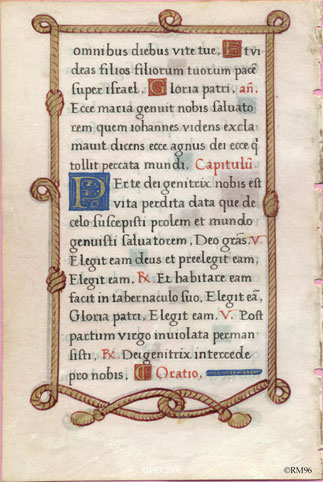 omnibus diebus vite tue, Et vi
deas filios filiorum tuorum pacē
super israel, Gloria patri, añ.
Ecce maria genuit nobis saluato
rem quem iohannes videns excla
mauit dicens ecce agnus dei ecce q̄
tollit peccata mundi. Capitulū
Per te dei genitrix nobis est
vita perdita data que de
celo suscepisti prolem et mundo
genuisti saluatorem, Deo gr̄as. V.
Elegit eam deus et preelegit eam,
Elegit eam. ℟. Et habitare eam
facit in tabernaculo suo, Elegit eā,
Gloria patri, Elegit eam. V. Post
partum virgo inuiolata perman
sisti, ℟. Dei genitrix intercede
pro nobis, Oratio,
©RM96